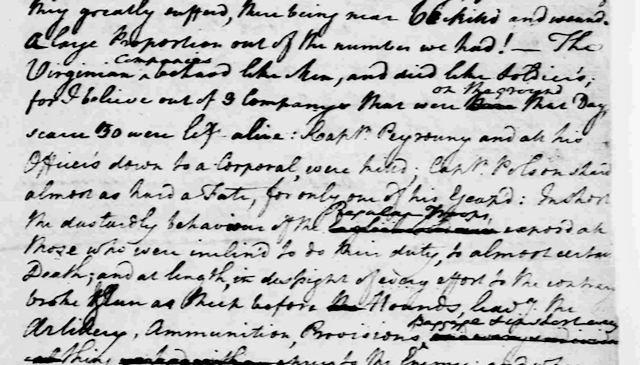 they greatly suffer'd, there being near 60 kill'd and wound-
a large Proportion out of the number we had! — The
Virginian Companies behav'd like Men, and died like Soldier's;
for I believe out of 3 Companys that were on the ground that Day,
scarce 30 were left alive: Capt.n Peyrouny and all his
Officer's down to a Corporal, were kill'd; Capt.n Polson shar'd
almost as hard a Fate, for only one of his Escap'd: In short
the dastardly behaviour of the Regular Troops, expos'd all
those who were inclin'd to do their duty, to almost certain
Death; and at length, in despight of every effort to the contrary
broke & run as Sheep before Hounds, leav.g the
Artillery, Ammunition, Provisions, Baggage & in short every
thing a prey to the Enemy; and when